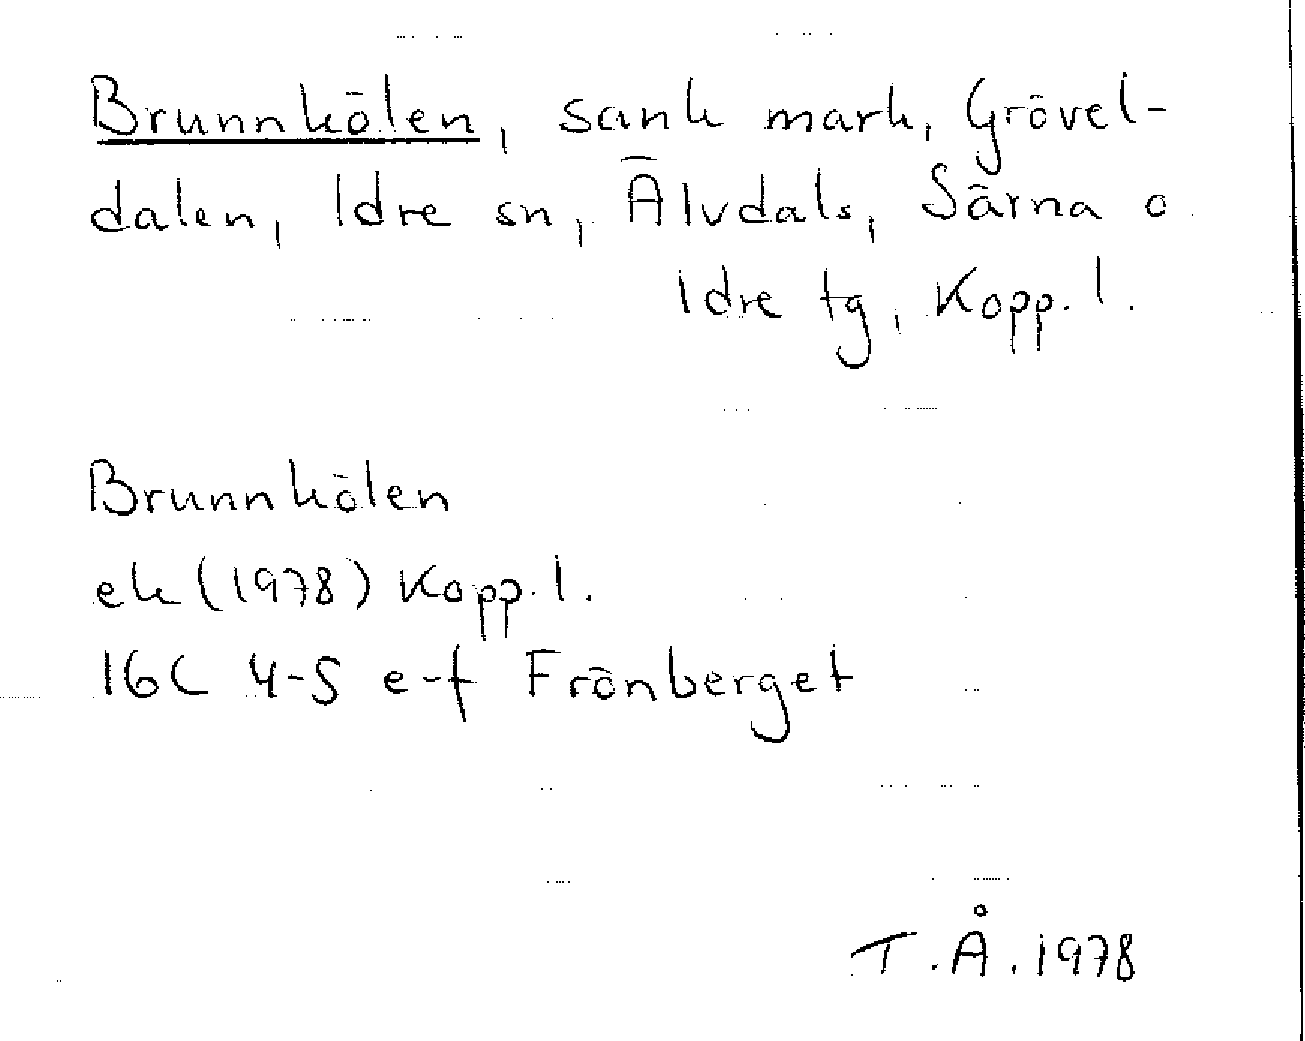 Brunnkölen, sank mark, Grövel-
dalen, Idre sn, Älvdals, Särna o
Idre tg, Kopp. l.
Brunnkölen
ek (1978) Kopp. l.
16C 4-5 e-f Frönberget
T.Å. 1978